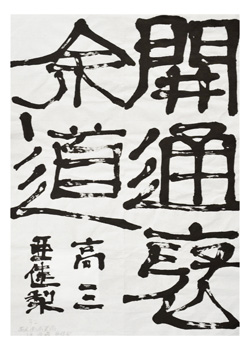 開通褒
余道
高三
亜佳梨